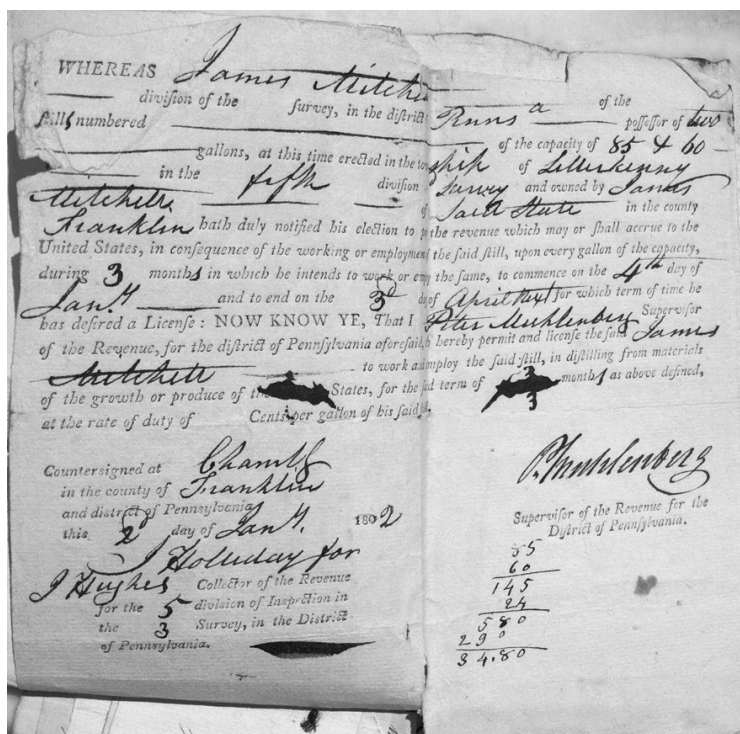 WHEREAS James Mitchell
division of the survey, in the district of the
stills numbered Penns a possessor of two
of the capacity of 85 & 60
gallons, at this time erected in the township of Letterkenny
in the fifth division Survey and owned by James
Mitchell of Said State in the county
Franklin hath duly notified his election to the revenue which may or shall accrue to the
United States, in consequence of the working or employment the said still, upon every gallon of the capacity,
during 3 months in which he intends to work or the same, to commence on the 4th day of
Jany and to end on the 3d of April next for which term of time he
has desired a License: NOW KNOW YE, That I Peter Muhlenberg Supervisor
of the Revenue, for the district of Pennsylvania aforesaid, hereby permit and license the said James
Mitchell to work employ the said still, in distilling from materials
of the growth or produce of States, for the term of 3 months as above defined,
at the rate of duty of Cents per gallon of his said 3
Countersigned at Chambg
in the county of Franklin
and district of Pennsylvania
this 2d day of Jany. 1802
J Holliday for
J Hughes Collector of the Revenue
for the 5 division of Inspection in
the 3 Survey, in the District
of Pennsylvania.
P. Muhlenberg
Supervisor of the Revenue for the
District of Pennsylvania.
85
60
145
24
580
290
34.80